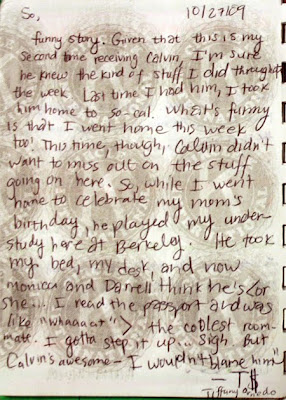 So,
10/27/09
funny story. Given that this is my
second time receiving Calvin, I'm sure
he knew the kind of stuff I did throughout
the week. Last time I had him, I took
him home to so-cal. What's funny
is that I went home this week
too! This time, though, Calvin didn't
want to miss out on the stuff
going on here. So, while I went
home to celebrate my mom's
birthday, he played my under-
study here at Berkeley. He took
my bed, my desk, and now
monica and Darrell think he's <or
she... I read the passport and was
like "whaaaat"> the coolest room-
mate. I gotta step it up... sigh. But
Calvin's awesome- I wouldn't blame him
- T$
Tiffany